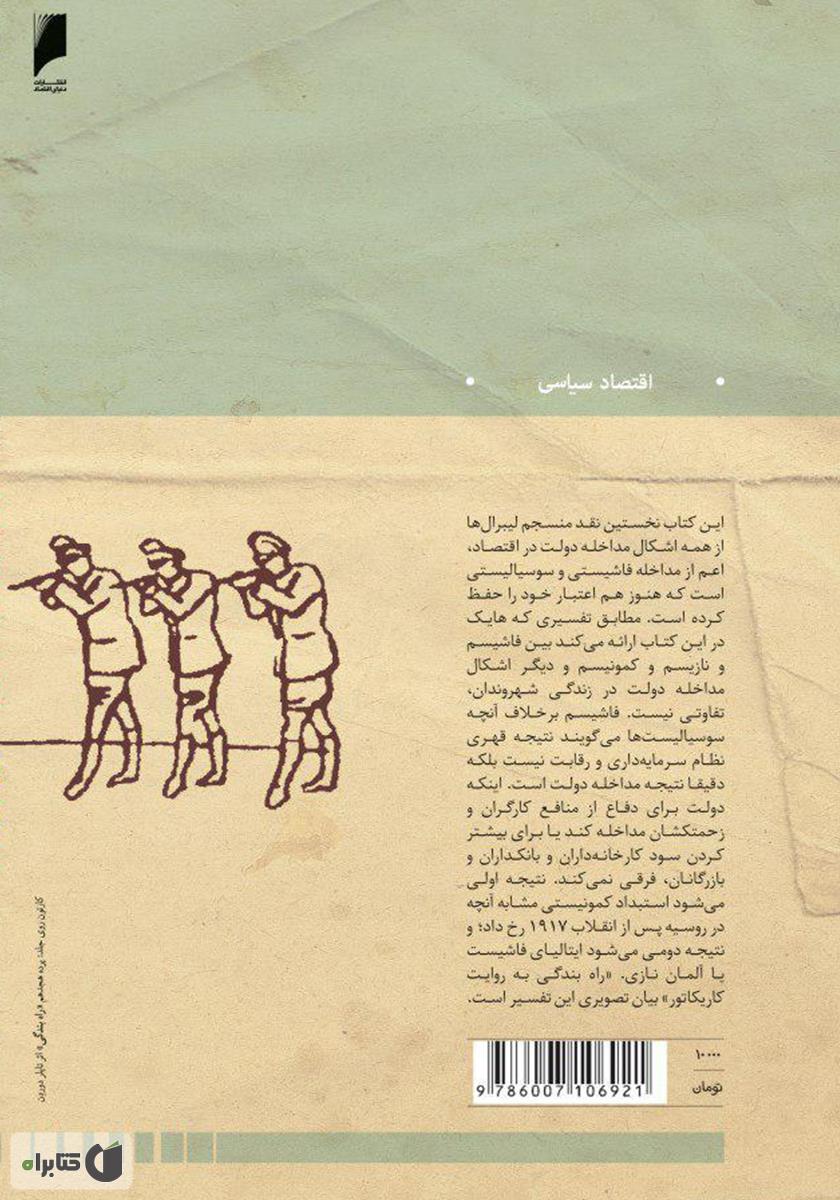 انتشارات
دنیای اقتصاد
• اقتصاد سیاسی •
این کتاب نخستین نقد منسجم لیبرال‌ها
از همه اشکال مداخله دولت در اقتصاد،
اعم از مداخله فاشیستی و سوسیالیستی
است که هنوز هم اعتبار خود را حفظ
کرده است. مطابق تفسیری که هایک
در این کتاب ارائه می‌کند بین فاشیسم
و نازیسم و کمونیسم و دیگر اشکال
مداخله دولت در زندگی شهروندان،
تفاوتی نیست. فاشیسم برخلاف آنچه
سوسیالیست‌ها می‌گویند نتیجه قهری
نظام سرمایه‌داری و رقابت نیست بلکه
دقیقا نتیجه مداخله دولت است. اینکه
دولت برای دفاع از منافع کارگران و
زحمتکشان مداخله کند یا برای بیشتر
کردن سود کارخانه‌داران و بانکداران و
بازرگانان، فرقی نمی‌کند. نتیجه اولی
می‌شود استبداد کمونیستی مشابه آنچه
در روسیه پس از انقلاب ۱۹۱۷ رخ داد؛ و
نتیجه دومی می‌شود ایتالیای فاشیست
یا آلمان نازی. «راه بندگی به روایت
کاریکاتور» بیان تصویری این تفسیر است.
کارتون روی جلد: پرده هجدهم «راه بندگی» از تایلر دوردن
۱۰۰۰۰
تومان
9 786007 106921
کتابراه